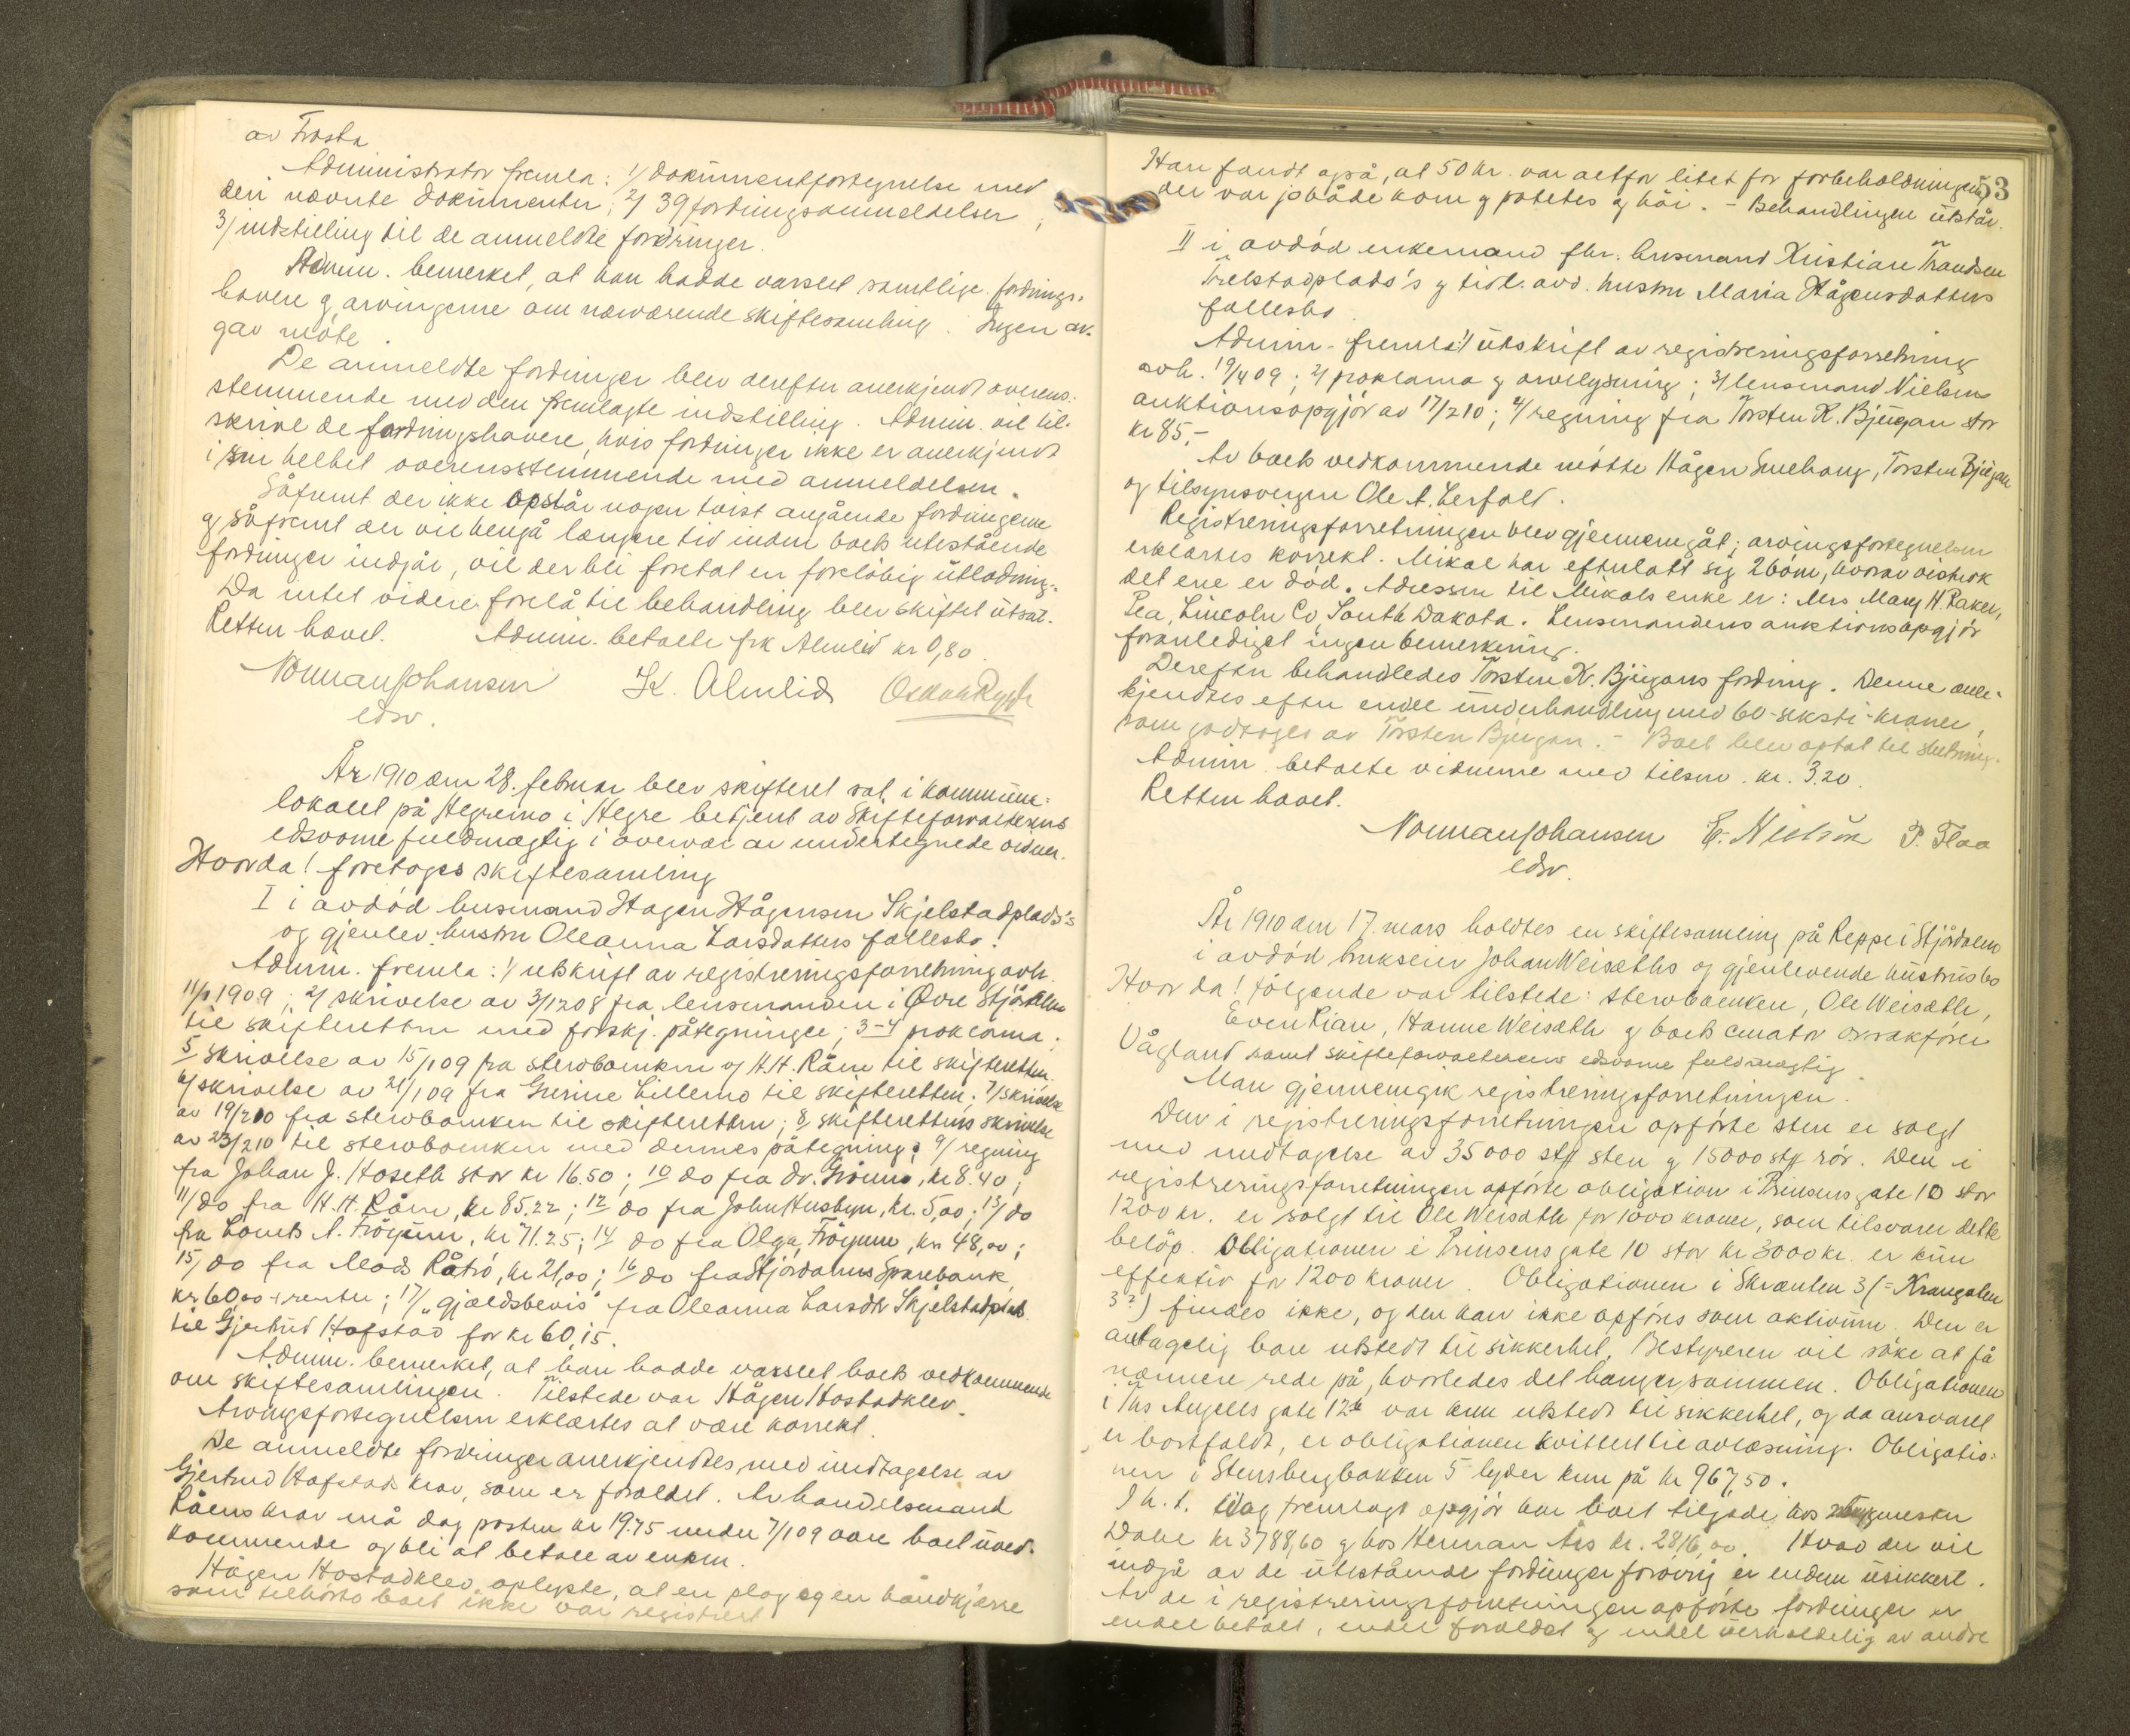 av Frosta
Administrator fremla: 1/ dokumentfortegnelse med
deri nævnte dokumenter; 2/ 39 fordringsanmeldelser;
3/ indstilling til de anmeldte fordringer.
Admin. bemerket, at han hadde varslet samtlige fordrings-
havere og arvingerne om nærværende skiftesamling. Ingen av.
gav møte
De anmeldte fordringer blev derefter anerkjendt overens-
stemmende med den fremlagte indstilling. Admin. vil til-
skrive de fordringshavere, hvis fordringer ikke er anerkjendt
i sin helhet overensstemmende med anmeldelsen.
Såfremt der ikke opstår nogen tvist angående fordringerne
og såfremt der vil hengå længere tid inden boets utestående
fordringer indgår, vil der bli foretat en foreløbig utlodning.
Da intet videre forelå til behandling blev skiftet utsat.
Retten hævet. Admin. betalte frk Almlid kr 0,80.
Norman Johansen K. Almlid Oskar
edsv.
År 1910 den 28. februar blev skifteret sat i kommune-
lokalet på Hegremo i Hegre betjent av skifteforvalterens
edsvorne fuldmægtig i overvær av undertegnede vidner.
Hvorda! foretoges skiftesamling
I i avdød husmand Hagen Hågensen Skjelstadplads's
og gjenlev. hustru Oleanna Larsdatters fællesbo.
Admin. fremla: 1/ utskrift av registreringsforretning avh.
11/1 1909; 2/ skrivelse av 3/12 08 fra lensmanden i Øvre Stjørdalen
til skifteretten med forskj. påtegninger; 3-4 proklama;
5 skrivelse av 15/1 09 fra sterboenken og H.H. Råen til skifteretten
6/ skrivelse av 21/1 09 fra Gurine Lillemo til skifteretten; 7/ skrivelse
av 19/2 10 fra sterboenken til skifteretten; 8/ skifterettens skrivelse
av 23/2 10 til sterboenken med dennes påtegning; 9/ regning
fra Johan J. Hoseth stor kr 16.50; 10 do fra dr. Grønns, kr 8.40;
11/ do fra H.H. Råen, kr 85.22; 12 do fra John Husbyn, kr. 5,00; 13/ do
fra Lorents A. Frøynes, kr 71.25; 14 do fra Olga Frøynes, kr 48,00;
15/ do fra Mads Råtrø, kr 21,00; 16 do fra Stjørdalens Sparebank,
kr 60.00 + renter; 17/ "gjældsbevis" fra Oleanna Larsdtr Skjelstadplads
til Gjertrud Hofstad for kr 60,15.
Admin. bemerket, at han hadde varslet boets vedkommende
om skiftesamlingen. Tilstede var Hågen Hostadklev.
Arvingsfortegnelsen erklærtes at være korrekt.
De anmeldte fordringer anerkjendtes, med undtagelse av
Gjertrud Hofstads krav, som er forældet. Av handelsmand
Råens krav må dog posten kr 19.75 under 7/1 09 være boet uved-
kommende og bli at betale av enken.
Hågen Hostadklev oplyste, at en plog og en håndkjærre
som tilhørte boet ikke var registrert
53
Han fandt også, at 50 kr. var altfor litet for forbeholdningen,
der var jo både korn og potetes og høi. - Behandlingen utstår.
II i avdød enkemand fhv. husmand Kristian Trondsen
Trelstadplads's og tidl. avd. hustru Maria Hågensdatters
fællesbo.
Admin. fremla: 1/ utskrift av registreringsforretning
avh. 19/4 09; 2/ proklama og arvelysning; 3/ lensmand Nielsens
auktionsopgjør av 17/2 10; 4/ regning fra Torsten K. Bjugan stor
kr 85.-
Av boets vedkommende møtte Hågen Smehaug, Torsten Bjugan
og tilsynsvergen Ole A. Lerfald.
Registreringsforretningen blev gjennemgåt; arvingsfortegnelsen
erklærtes korrekt. Mikal har efterlatt sig 2 barn, hvorav vistnok
det ene er død. Adressen til Mikals enke er: Mrs Mary H. Raken,
Pea, Lincoln Co, South Dakota. Lensmandens auktionsopgjør
foranlediget ingen bemerkning.
Derefter behandledes Torsten K. Bjugans fordring. Denne aner-
kjendtes efter endel underhandling med 60-seksti-kroner,
som godtoges av Torsten Bjugan. - Boet blev optat til slutning.
Admin. betalte vidnerne med tilsm. kr. 3.20.
Retten hævet.
Norman Johansen E. Nielsen P. Flaa
edsv.
År 1910 den 17. mars holdtes en skiftesamling på Reppe i Stjørdalen
i avdød brukseier Johan Weisæths og gjenlevende hustrus bo
Hvor da! følgende var tilstede: sterboenken, Ole Weisæth,
Even Rian, Hanne Weisæth og boets curator orsakfører
Vågland samt skifteforvalterens edsvorne fuldmægtig.
Man gjennemgik registreringsforretningen.
Den i registreringsforretningen opførte sten er solgt
med undtagelse av 35000 stk sten og 15000 stk rør. Den i
registreringsforretningen opførte obligation i Prinsens gate 10 stor
1200 kr. er solgt til Ole Weisæth for 1000 kroner, som tilsvarer dette
beløp. Obligationen i Prinsens gate 10 stor kr 3000 kr. er kun
effektiv for 1200 kroner. Obligationen i Skrænten 3 (= Krangalen
3?) findes ikke, og den kan ikke opføres som aktivum. Den er
antagelig bare utstedt til sikkerhet. Bestyreren vil søke at få
nærmere rede på, hvorledes det hænger sammen. Obligationen
i Ths Angells gate 12b var kun utstedt til sikkerhet, og da ansvaret
er bortfaldt, er obligationen kvittert til avlæsning. Obligatio-
nen i Stensbergbakken 5 lyder kun på kr 967,50.
I h. t. idag fremlagt opgjør har boet tilgode hos
Dahl kr 3788,60 og hos Herman Ås kr. 2816,00. Hvad der vil
indgå av de utestående fordringer forøvrig er endnu usikkert.
Av de i registreringsforretningen opførte fordringer er
endel betalt, endel forældet og endel uerholdelig av andre